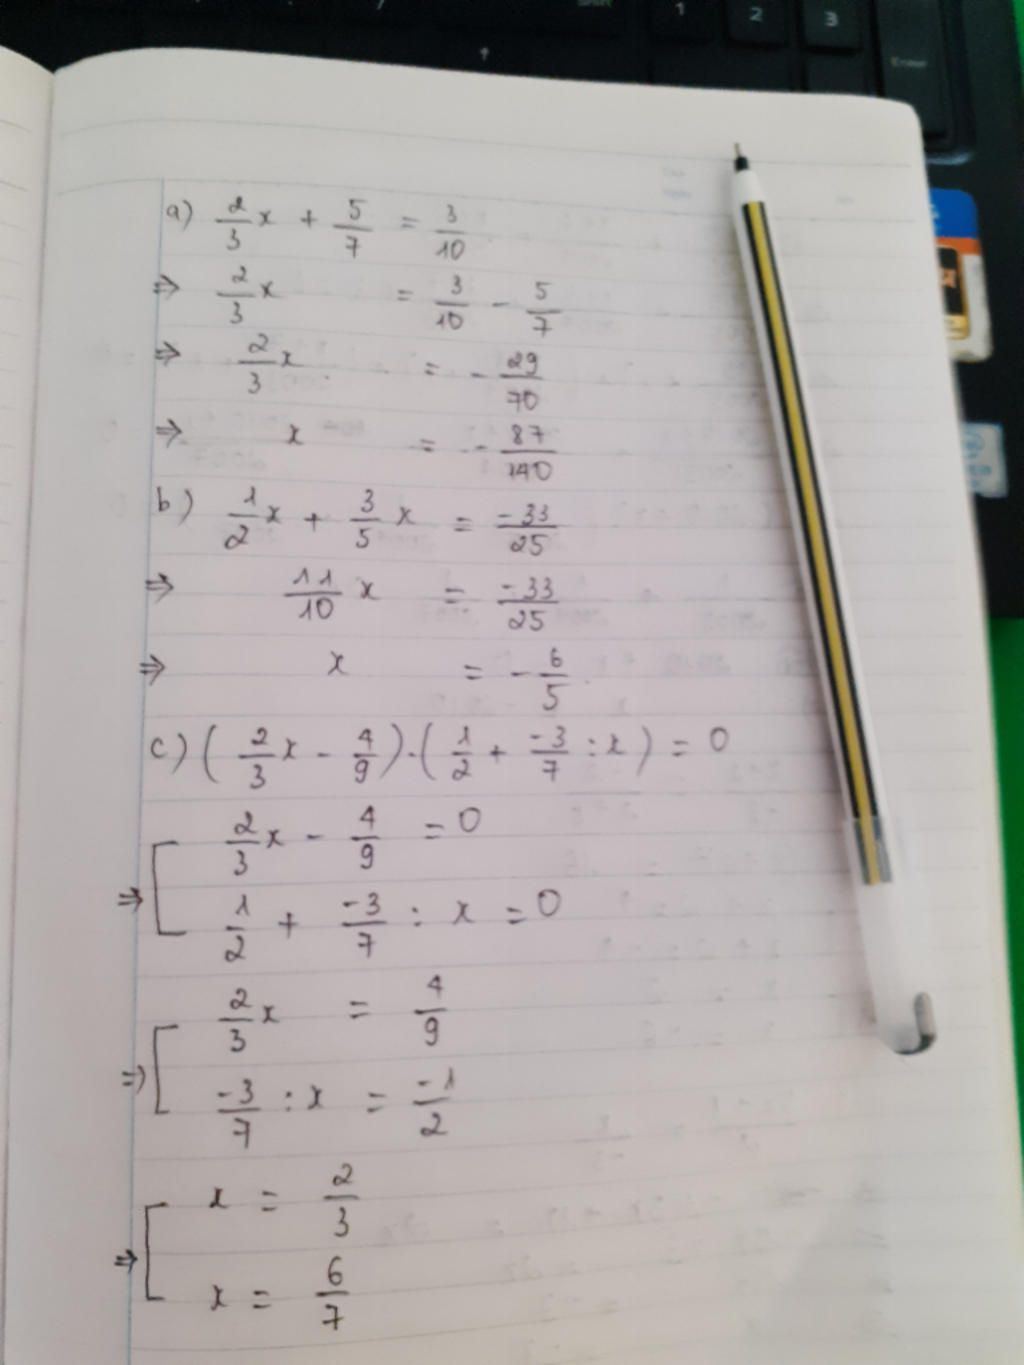 1 2 3
Enter
a) 2/3 x + 5/7 = 3/10
⇒ 2/3 x = 3/10 - 5/7
⇒ 2/3 x = - 29/70
⇒ x = - 87/140
b) 1/2 x + 3/5 x = -33/25
⇒ 11/10 x = -33/25
⇒ x = - 6/5
c) ( 2/3 x - 4/9 ) . ( 1/2 + -3/7 : x ) = 0
⇒ [ 2/3 x - 4/9 = 0
1/2 + -3/7 : x = 0
⇒ [ 2/3 x = 4/9
-3/7 : x = -1/2
⇒ [ x = 2/3
x = 6/7